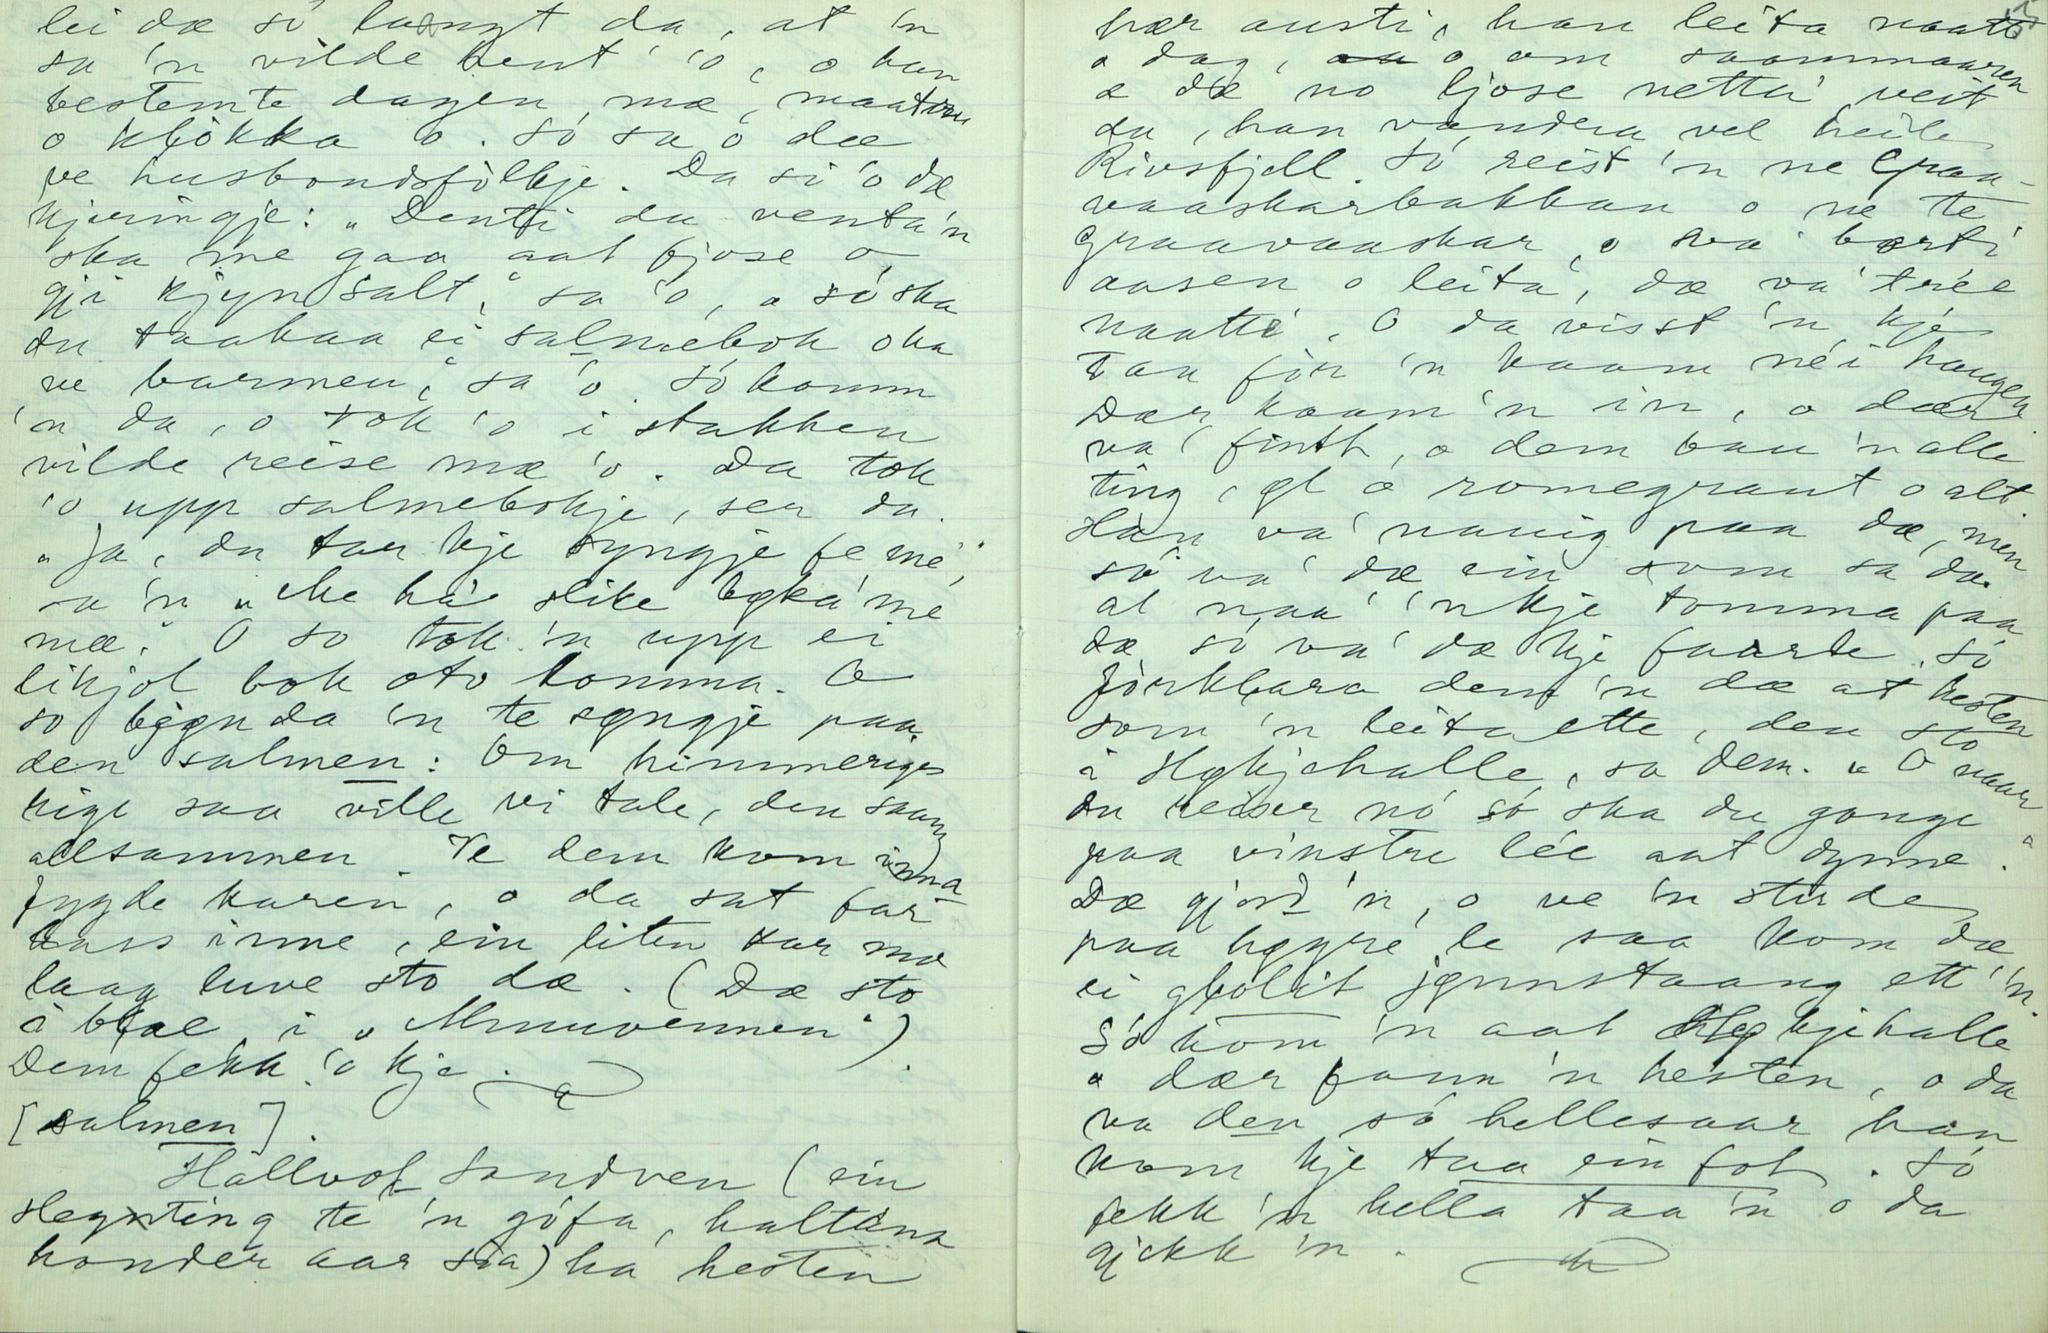 lei dæ só langt da, at 'n
sa 'n vilde hent' 'o, o han
bestemte dagen mæ, maaten
o klòkka o. Só sa 'o dæ
ve husbondsfòlkje. Da si 'o dæ
kjeringje: "Denti du venta 'n
ska me gaa aat fjose o
gji kjyn salt," sa 'o, "o só ska
du taakaa ei salmebok o ha
ve barmen," sa 'o. Só komm
'n da, o tok 'o i stakken
vilde reise mæ 'o. Da tok
'o upp salmebokje, ser du.
"Ja, du tar kje syngje fe mé,"
sa 'n "Me há slike bøká me
mæ." O so tok 'n upp ei
likjol bok oto lomma. O
so bigynda 'n te syngje paa
den salmen: Om himmeriges
rige saa ville vi tale, den saang
allsammen. Te dem kom inna
fygde karen, o da sat far
hass inne, ein liten kar mæ
laag luve sto dæ. (Dæ sto
å bkæ i "Mmuvennen").
Dem fekk 'o kje.
[salmen].
Hallvol Sandven (ein
slegting te 'n gófa, haltanna
honder aar sia) ha hesten
hær austi, han leita naatt
o dag, o om saammaaren
æ dæ no ljose nettá veit
du, han vandra vel heile
Rivsfjell. Só reist 'n ne Graa-
vaaskarbakkan o ne te
Graavaaskar, o sva' borti
aasen o leita', dæ va' trée
naatti. O da visst 'n kje
taa fór 'n kaam né i haugen.
Dær kaam 'n in, o dær
va' fint, o dem bau 'n alle
ting, øl o romegraut o alt
Han va' nauig paa dæ, men
só va' dæ ein som sa da
at naa' 'n kje tomma paa
dæ só va' dæ kje faarle. Só
fórklara dem 'n dæ at hesten
som 'n leita ette, den sto
i Høkjehalle, sa dem. "O naar
du reiser nó só ska du gange
paa vinstre lée aat dynne."
Dæ gjord 'n, o ve 'n studde
paa høgre le saa kom dæ
ei gloheit jønnstaang ett 'n.
Só kom 'n aat Høkjehalle
o dær fann 'n hesten, o da
va den só hellesaar han
kom kje taa ein fot. Só
fekk 'n hella taa 'n o da
gjekk 'n.